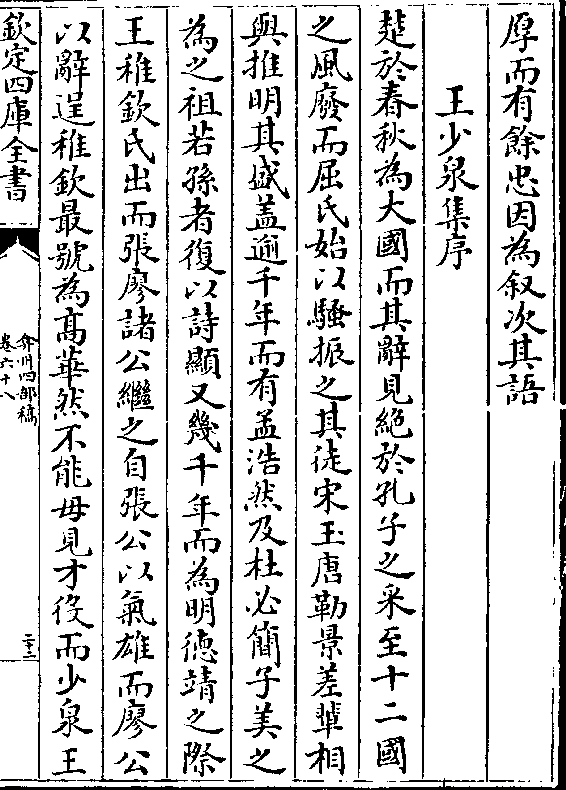 厚而有餘忠因為叙次其語
王少泉集序
楚於春秋為大國而其辭見絶於孔子之采至十二國
之風廢而屈氏始以騷振之其徒宋玉唐勒景差輩相
與推明其盛盖逾千年而有孟浩然及杜必簡子美之
為之祖若孫者復以詩顯又幾千年而為明德靖之際
王稚欽氏出而張廖諸公繼之自張公以氣雄而廖公
以辭逞稚欽最號為高華然不能毋見才役而少泉王
欽定四庫全書
弇州四部稿
卷六十八
二十二